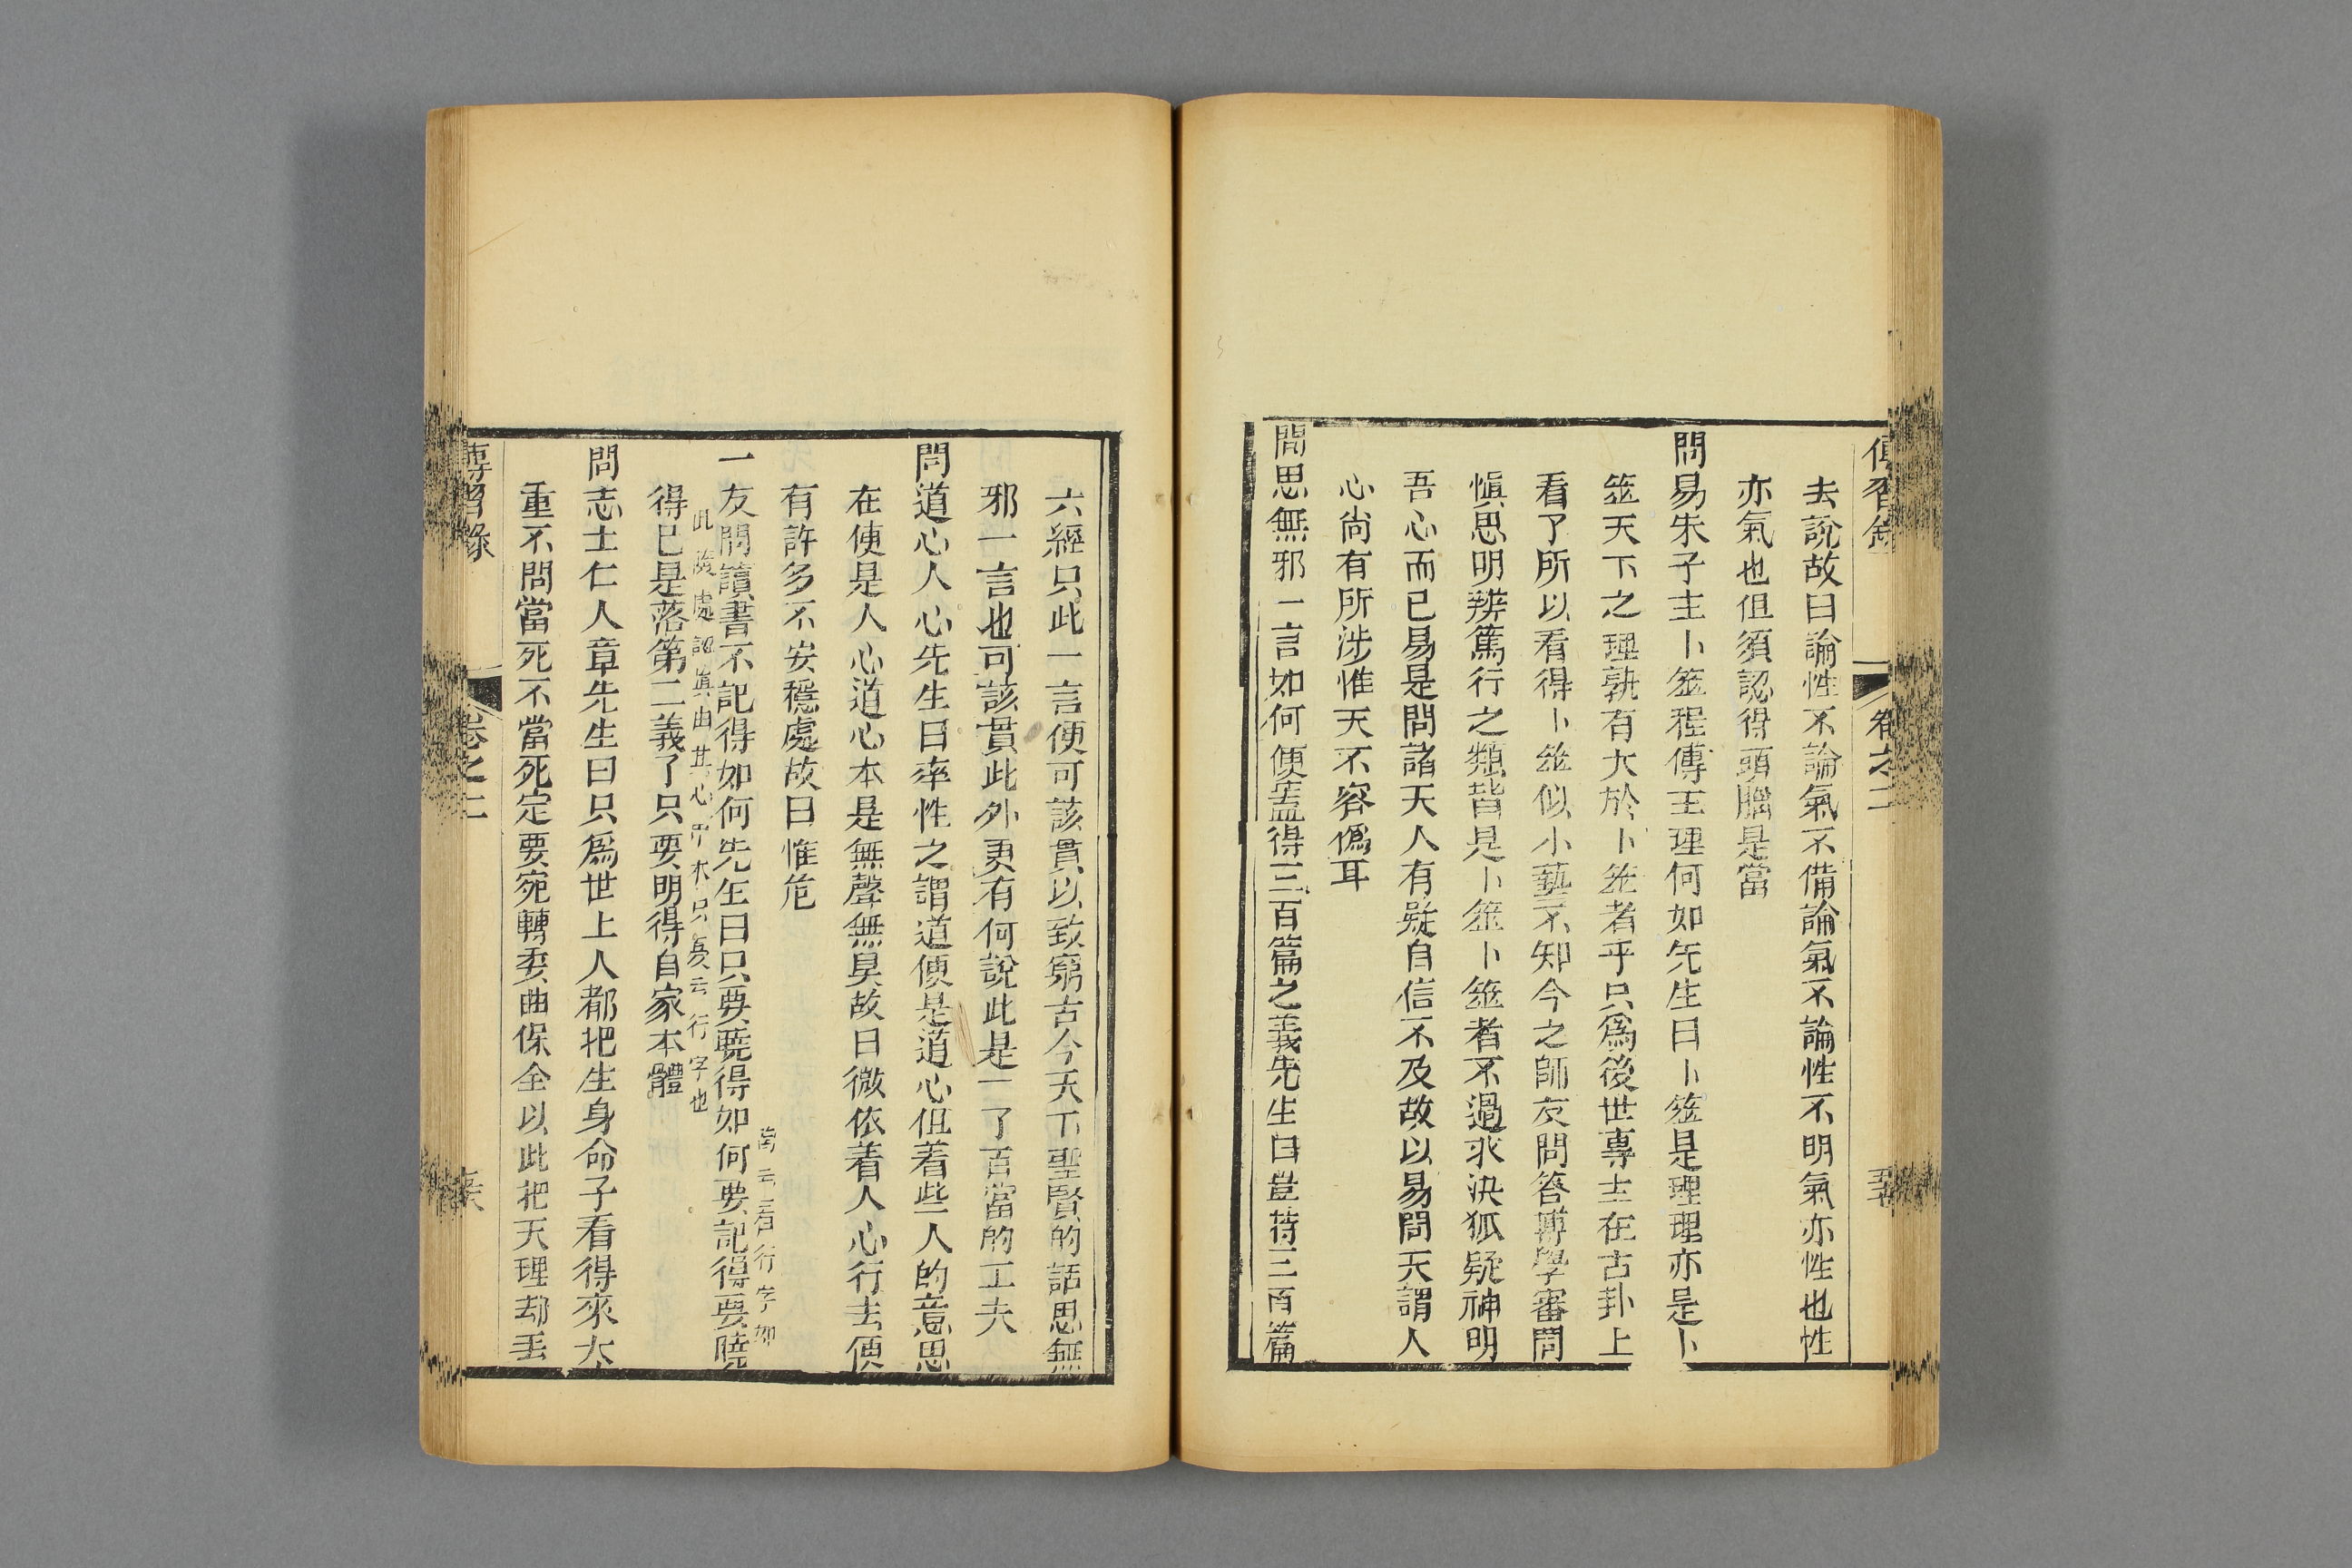 傳習錄
卷之二
去說故曰論性不論氣不備論氣不論性不明氣亦性也性
亦氣也但須認得頭腦是當
問易朱子主卜筮程傳主理何如先生曰卜筮是理理亦是卜
筮天下之理孰有大於卜筮者乎只爲後世專主在古卦上
看了所以看得卜筮似小藝不知今之師友問答博學審問
愼思明辨篤行之類皆是卜筮卜筮者不過求決狐疑神明
吾心而已易是問諸天人有疑自信不及故以易問天謂人
心尚有所涉惟天不容僞耳
問思無邪一言如何便蓋得三百篇之義先生曰豈特三百篇
六經只此一言便可該貫以致窮古今天下聖賢的話思無
邪一言也可該貫此外更有何說此是一了百當的工夫
問道心人心先生曰率性之謂道便是道心但着些人的意思
在便是人心道心本是無聲無臭故曰微依着人心行去便
有許多不安穩處故曰惟危
一友問讀書不記得如何先生曰只要曉得如何要記得要曉
得已是落第二義了只要明得自家本體
問志士仁人章先生曰只爲世上人都把生身命子看得來太
重不問當死不當死定要宛轉委曲保全以此把天理却丟
傳習錄
卷之二